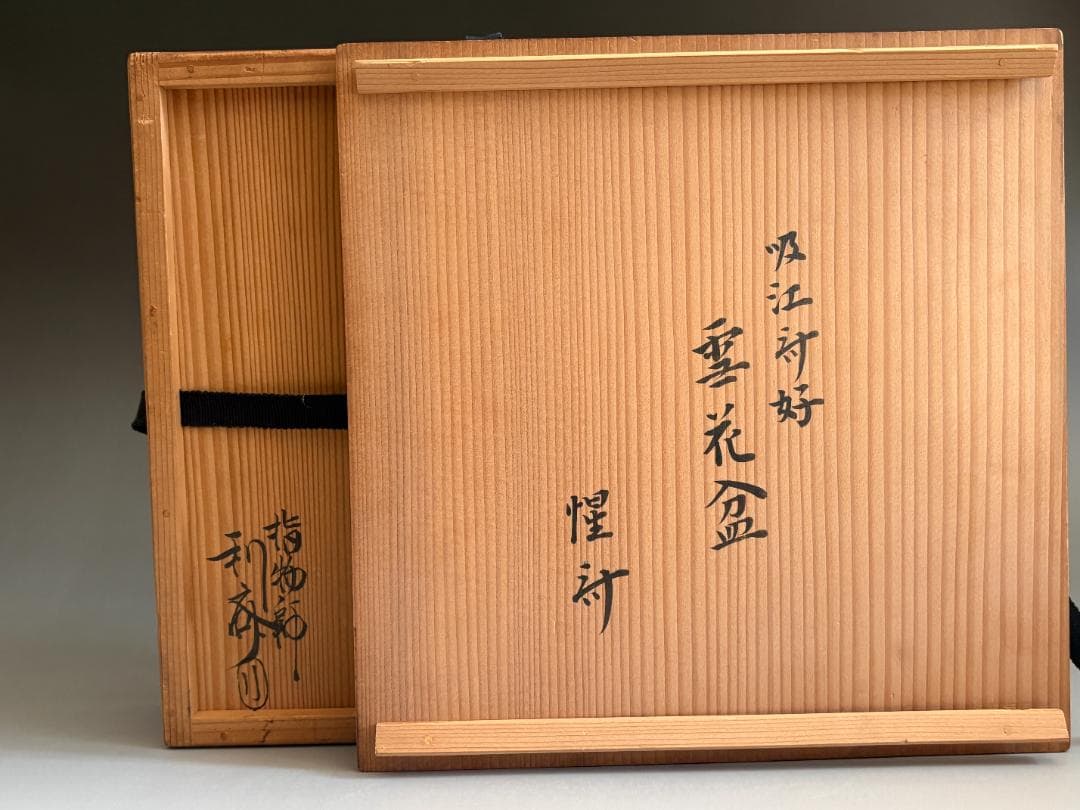 吸江斎好
雲花盆
惺斎
指物師
利斎